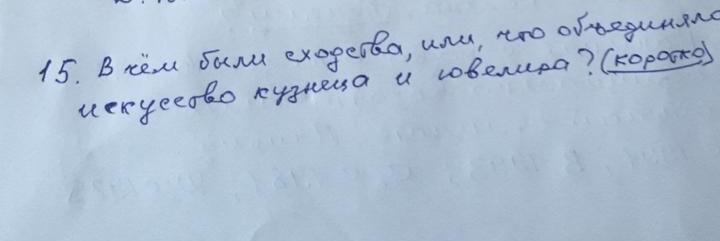 15. В чём были сходства, или, что объединяло
искусство кузнеца и ювелира? (коротко)